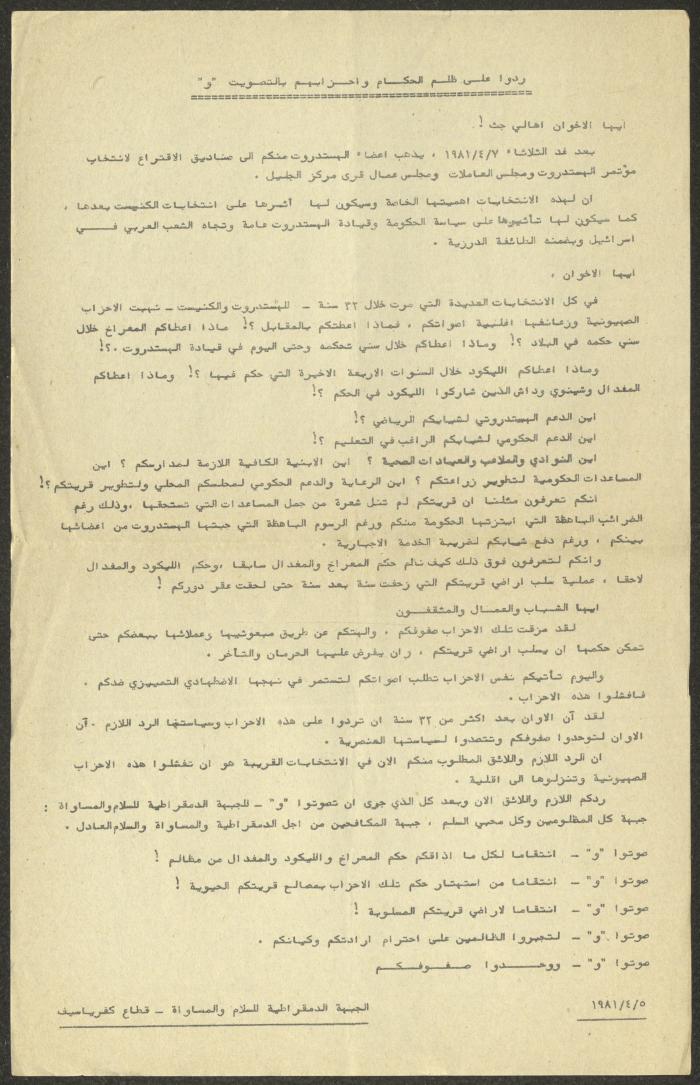 ردوا على ظلم الحكام واحزابهم بالتصويت "و"
ايها الاخوان اهالي جث !
بعد غد الثلاثاء ١٩٨١/٤/٧ ، يذهب اعضاء الهستدروت منكم الى صناديق الاقتراع لانتخاب
مؤتمر الهستدروت ومجلس العاملات ومجلس عمال قرى مركز الجليل .
ان لهذه الانتخابات اهميتها الخاصة وسيكون لها أثرها على انتخابات الكنيست بعدها ،
كما سيكون لها تأثيرها على سياسة الحكومة وقيادة الهستدروت عامة وتجاه الشعب العربي في
اسرائيل وبضمنه الطائفة الدرزية .
ايها الاخوان ،
في كل الانتخابات العديدة التي مرت خلال ٣٢ سنة - للهستدروت والكنيست - نهبت الاحزاب
الصهيونية وزعانفها اغلبية اصواتكم ، فماذا اعطتكم بالمقابل ؟! ماذا اعطاكم المعراخ خلال
سني حكمه في البلاد ؟! وماذا اعطاكم خلال سني تحكمه وحتى اليوم في قيادة الهستدروت .؟!
وماذا اعطاكم الليكود خلال السنوات الاربعة الاخيرة التي حكم فيها ؟! وماذا اعطاكم
المفدال وشينوي وداش الذين شاركوا الليكود في الحكم ؟!
اين الدعم الهستدروتي لشبابكم الرياضي ؟!
اين الدعم الحكومي لشبابكم الراغب في التعليم ؟!
اين النوادي والملاعب والعيادات الصحية ؟ اين الابنية الكافية اللازمة لمدارسكم ؟ اين
المساعدات الحكومية لتطوير زراعتكم ؟ اين الرعاية والدعم الحكومي لمجلسكم المحلي ولتطوير قريتكم؟!
انكم تعرفون مثلنا ان قريتكم لم تنل شعرة من جمل المساعدات التي تستحقها ،وذلك رغم
الضرائب الباهظة التي ابتزتها الحكومة منكم ورغم الرسوم الباهظة التي جبتها الهستدروت من اعضائها
بينكم ، ورغم دفع شبابكم لضريبة الخدمة الاجبارية .
وانكم لتعرفون فوق ذلك كيف حكم المعراخ والمفدال سابقا ،وحكم الليكود والمفدال
لاحقا ، عملية سلب اراضي قريتكم التي زحفت سنة بعد سنة حتى لحقت عقر دوركم !
ايها الشباب والعمال والمثقفون
لقد مزقت تلك الاحزاب صفوفكم ، والهتكم عن طريق مبعوثيها وعملائها ببعضكم حتى
تمكن حكمها ان يسلب اراضي قريتكم ، وان يفرض عليها الحرمان والتأخر .
واليوم تأتيكم نفس الاحزاب تطلب اصواتكم لتستمر في نهجها الاضطهادي التمييزي ضدكم .
فافشلوا هذه الاحزاب .
لقد آن الاوان بعد اكثر من ٣٢ سنة ان تردوا على هذه الاحزاب وسياستها الرد اللازم . آن
الاوان لتوحدوا صفوفكم وتتصدوا لسياستها العنصرية .
ان الرد اللازم واللائق المطلوب منكم الان في الانتخابات القريبة هو ان تفشلوا هذه الاحزاب
الصهيونية وتنزلوها الى اقلية .
ردكم اللازم واللائق الان وبعد كل الذي جرى ان تصوتوا "و" - للجبهة الدمقراطية للسلام والمساواة :
جبهة كل المظلومين وكل محبي السلم ، جبهة المكافحين من اجل الدمقراطية والمساواة والسلام العادل .
صوتوا "و" - انتقاما لكل ما اذاقكم حكم المعراخ والليكود والمفدال من مظالم !
صوتوا "و" - انتقاما من استهتار حكم تلك الاحزاب بمصالح قريتكم الحيوية !
صوتوا "و" - انتقاما لاراضي قريتكم المسلوبة !
صوتوا "و" - لتجبروا الظالمين على احترام ارادتكم وكيانكم .
صوتوا "و" - ووحدوا صفوفكم
١٩٨١/٤/٥
الجبهة الدمقراطية للسلام والمساواة - قطاع كفرياسيف